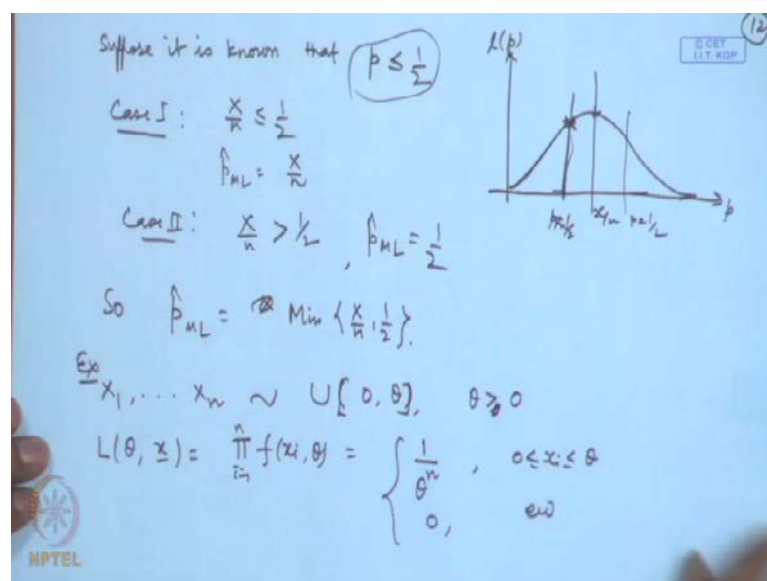 12
© CET
I.I.T. KGP
Suppose it is known that p ≤ 1/2
l(p)
Case I : X/n ≤ 1/2
p̂_ML = X/n
p
p=1/2 x/n p=1/2
Case II : X/n > 1/2 , p̂_ML = 1/2
So p̂_ML = Min {X/n, 1/2}.
Ex
X1, ... Xn ~ U[0, θ], θ > 0
L(θ, x) = ∏ i=1 n f(xi, θ) = { 1/θ^n , 0 ≤ xi ≤ θ
0, ew
NPTEL